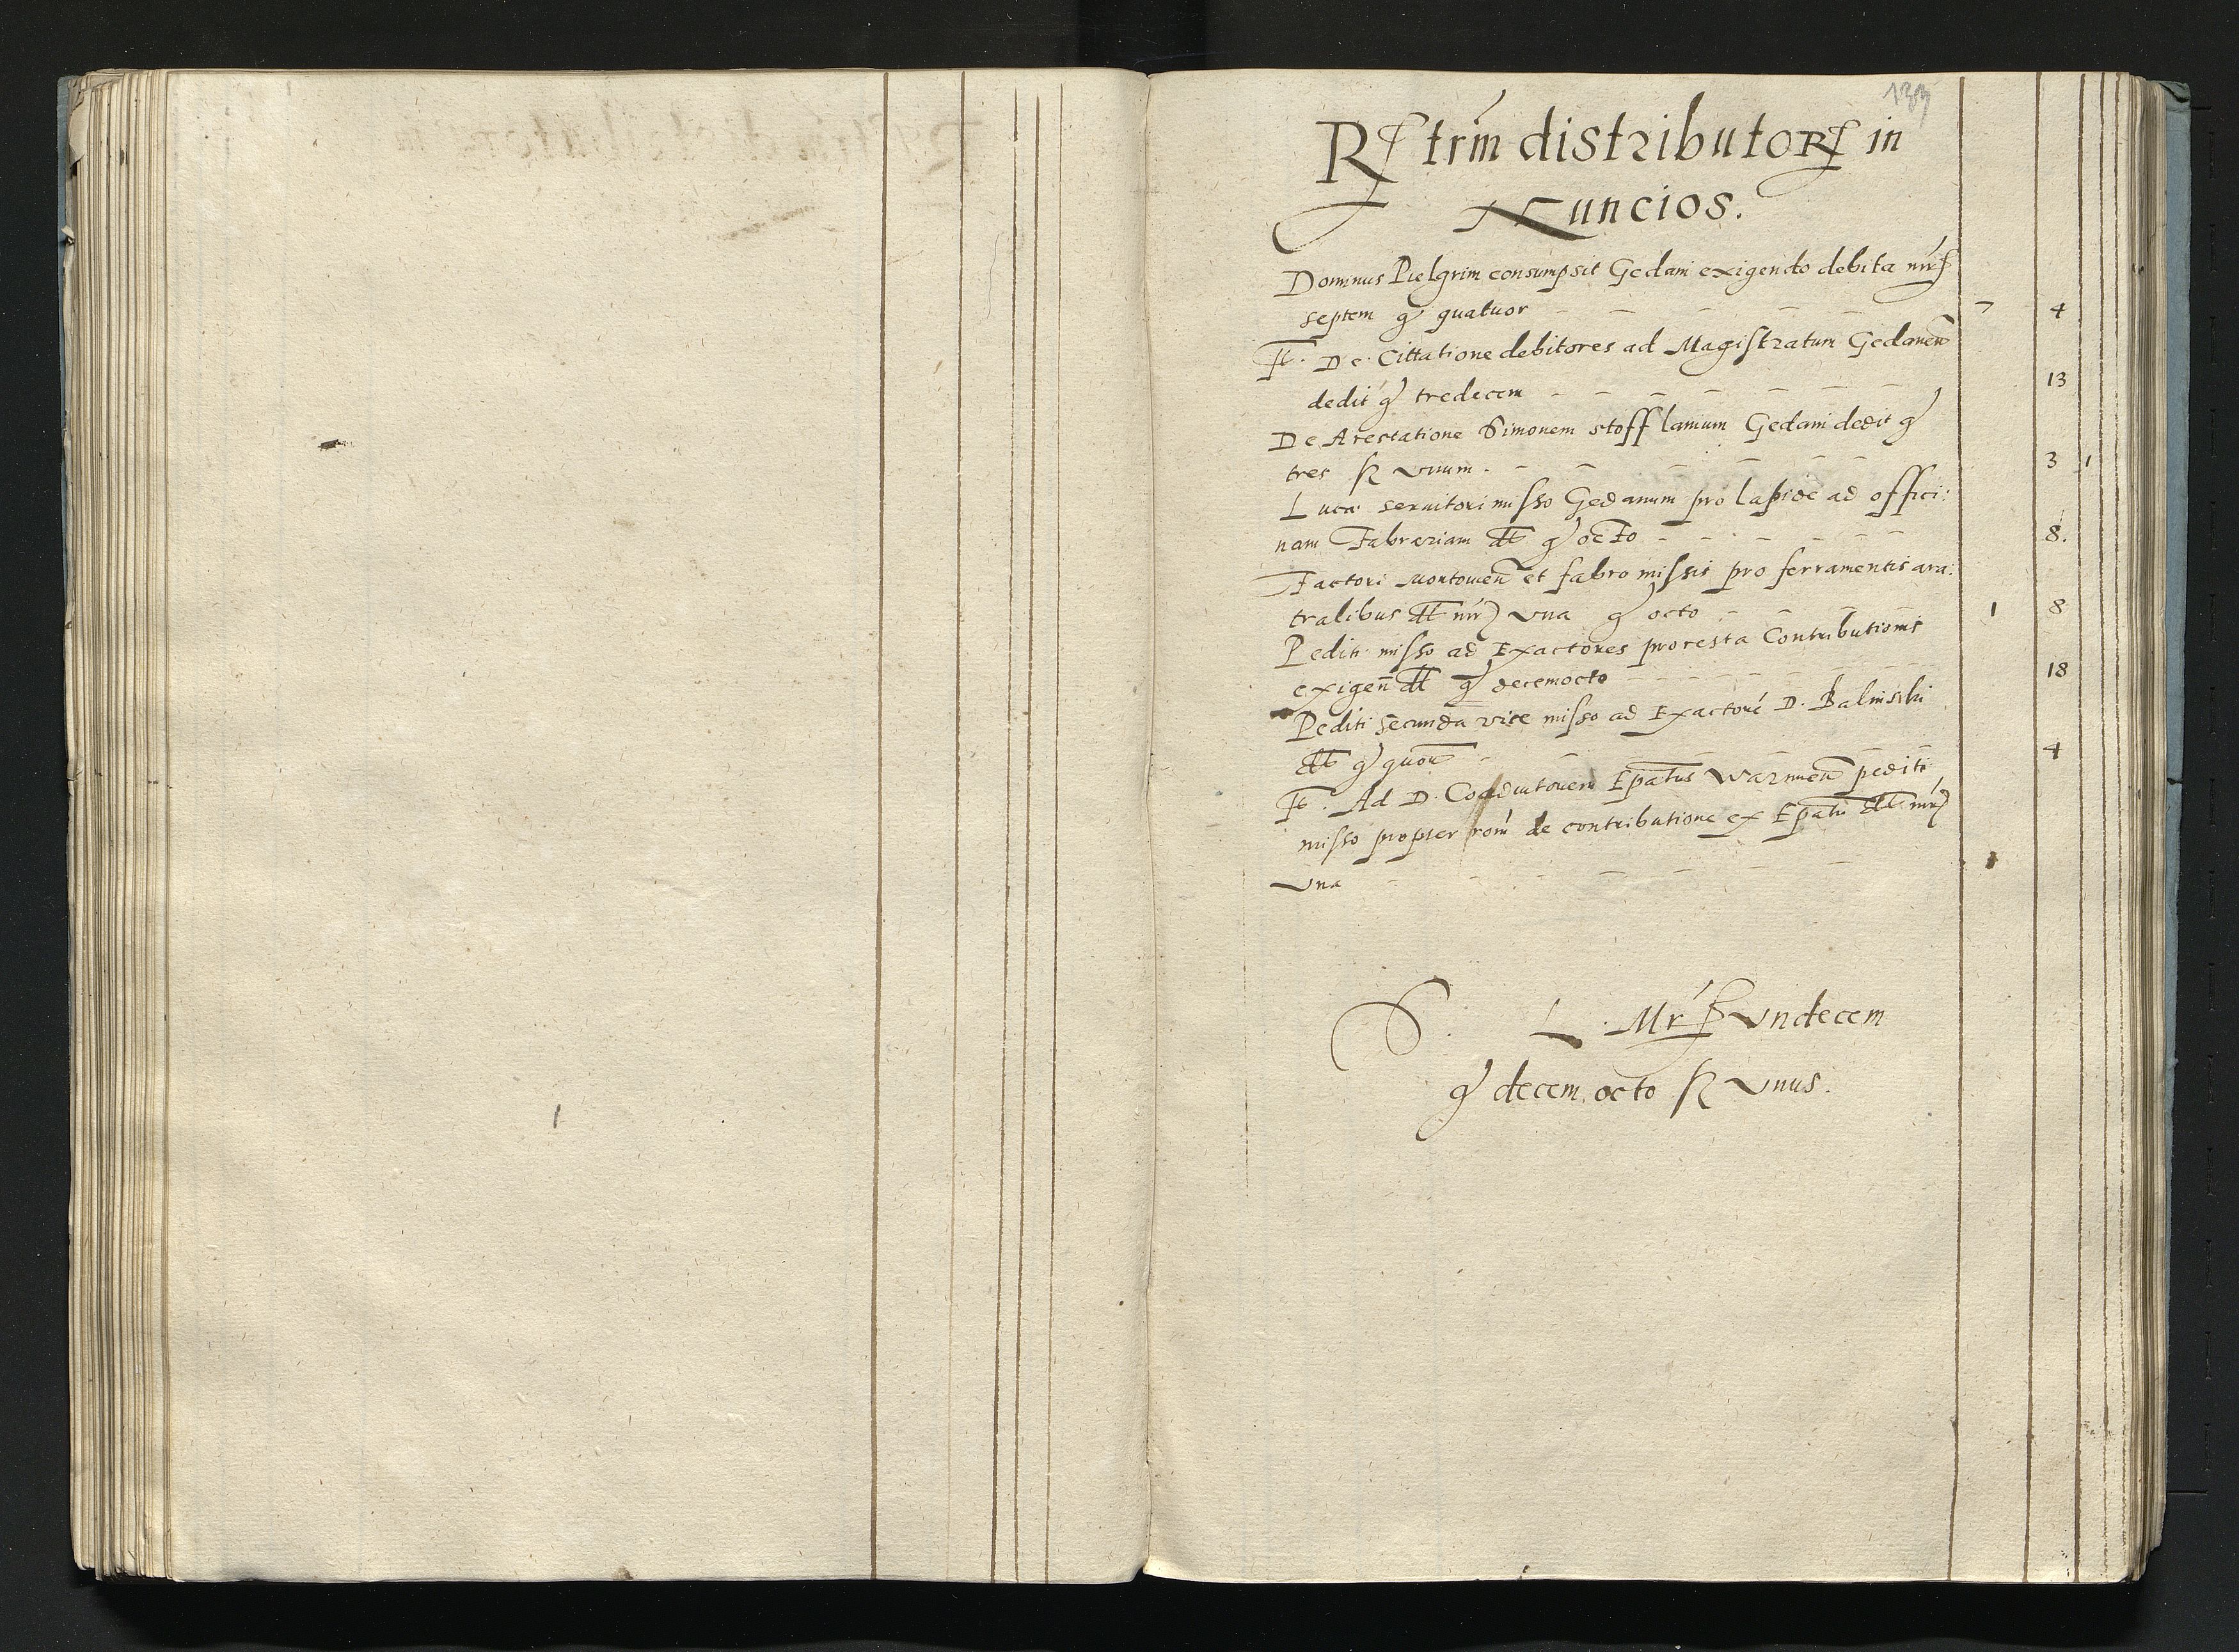 133
Rẽtrm̃ distributorũ in
Nuncios.
Dominus Pielgrim consumpsit Gedani exigendo debita mr̃
septem g̃ quatuor 7 4
It. De Cittatione debitores ad Magistratum Gedaneñ
dedit g̃ tredecem 13
De Arestatione Simonem stofflamum Gedani dedit g̃
tres ß vnum. 3 1
Luca seruitori misso Gedanum pro lapide ad offici:
nam Fabrariam dt̃ g̃ octo 8.
Factori Montouieñ et fabro missis pro ferramentis ara:
tralibus dt̃ mr̃ vna g̃ octo 1 8
Pediti misso ad Exactores pro resta Contributionis
exigeñ dt̃ g̃ decemocto 18
Pediti secunda vice misso ad Exactorẽ D. Balinski
dt̃ g̃ quor̃ 4
It. Ad D. Coadiutorem Ep̃atus Warmieñ pediti
misso propter rom̃ de contributione ex Ep̃atu dt̃ mr̃
vna 1
S. L. Mr̃ Vndecem
g̃ decem octo ß Vnus.